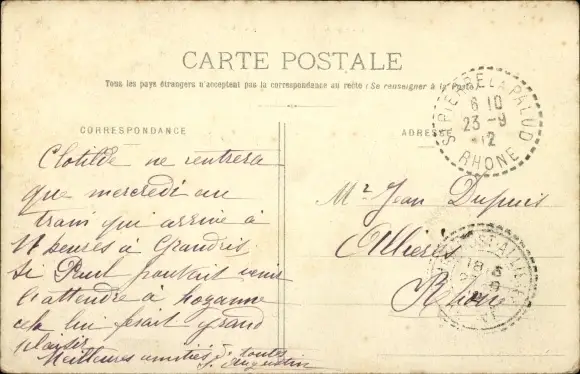 CARTE POSTALE
Tous les pays étrangers n'acceptent pas la correspondance au recto (Se renseigner à la Poste)
CORRESPONDANCE
ADRESSE
ST PIERRE LA PALUD
6 10
23 -9
12
RHONE
Clotilde ne rentrera
que mercredi au
train qui arrive à
11 heures à Grandris
Si Paul pouvait venir
l'attendre à
cela lui ferait grand
plaisir
Meilleures amitiés de toutes
Augustin
Mr Jean Dupuis
Rhône
18